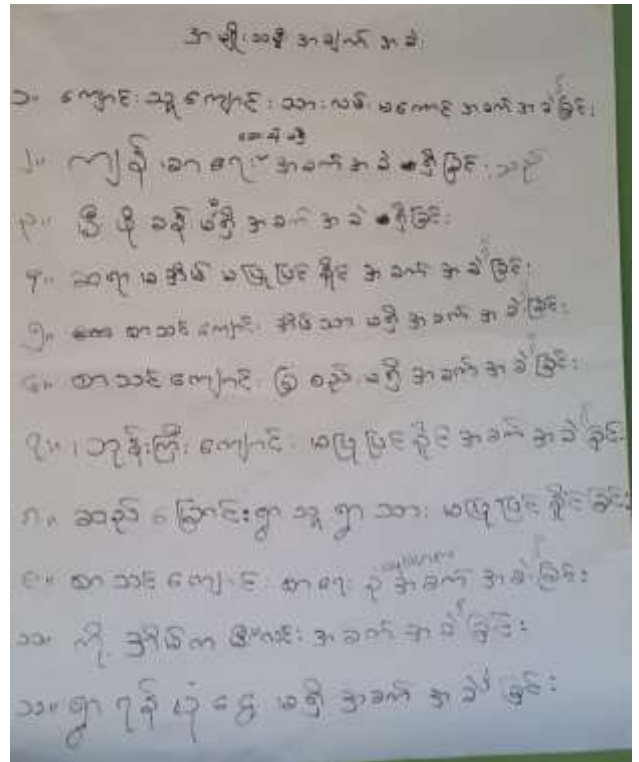 အမျိုးသမီး အချက် အခဲ
၁။ ကျောင်းသူ ကျောင်းသား လမ်းမကောင်း အခက် အခဲ ခြင်း
၂။ ကျန်းမာရေး ဆေးမရှိ အခက် အခဲ ရှိ ခြင်း သည်
၃။ မီး ဖို ခန်း မရှိ အခက် အခဲ ရှိခြင်း
၄။ ဆရာမ အိမ် မပြုပြင်နိုင် အခက် အခဲ ခြင်း
၅။ စာသင် ကျောင်း အိမ်သာ မရှိ အခက် အခဲ ခြင်း
၆။ စာသင် ကျောင်း ခြံစည်း မရှိ အခက် အခဲ ခြင်း
၇။ ဘုန်းကြီး ကျောင်း မပြုပြင်နိုင် အခက် အခဲ ခြင်း
၈။ ဆည် မြောင်း ရွာသူ ရွာသား မပြုပြင်နိုင်ခြင်း
၉။ စာသင် ကျောင်း စာရေး ခုံ အခက် အခဲ ခြင်း
၁၀။ ကို့ အိမ်က မီးလင်း အခက် အခဲ ခြင်း
၁၁။ ရွာ ရန် ပုံ ငွေ မရှိ အခက် အခဲ ခြင်း